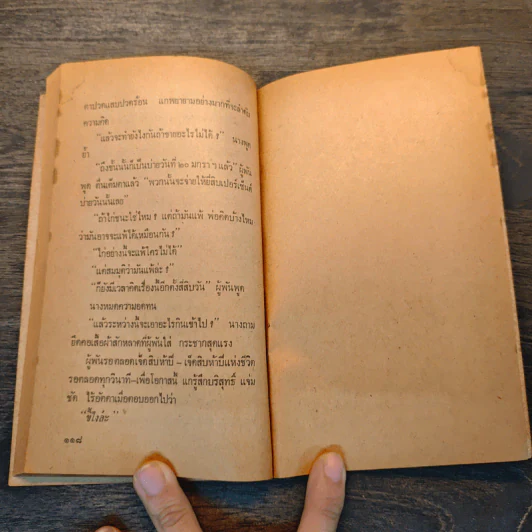 ตาปวดแสบปวดร้อน แกพยายามอย่างมากที่จะลำดับ
ความคิด
"แล้วจะทำยังไงกันถ้าขายอะไรไม่ได้ ?" นางพูด
ย้ำ
"ถึงขั้นนั้นก็เป็นบ่ายวันที่ ๒๐ มกรา ฯ แล้ว" ผู้พัน
พูด ตื่นเต็มตาแล้ว "พวกนั้นจะจ่ายให้ยี่สิบเปอร์เซ็นต์
บ่ายวันนั้นเลย"
"ถ้าไก่ชนะใช่ไหม ? แต่ถ้ามันแพ้ พ่อคิดบ้างไหม
ว่ามันอาจจะแพ้ได้เหมือนกัน ?"
"ไก่อย่างนี้จะแพ้ใครไม่ได้"
"แต่สมมุติว่ามันแพ้ล่ะ ?"
"ก็ยังมีเวลาคิดเรื่องนี้อีกตั้งสี่สิบวัน" ผู้พันพูด
นางหมดความอดทน
"แล้วระหว่างนี้จะเอาอะไรกินเข้าไป ?" นางถาม
ยึดคอเสื้อผ้าสักหลาดที่ผู้พันใส่ กระชากสุดแรง
ผู้พันรอตลอดเจ็ดสิบห้าปี – เจ็ดสิบห้าปีแห่งชีวิต
รอตลอดทุกวินาที–เพื่อโอกาสนี้ แกรู้สึกบริสุทธิ์ แจ่ม
ชัด ไร้อัตตาเมื่อตอบออกไปว่า
"ขี้ไงล่ะ"
๑๑๘